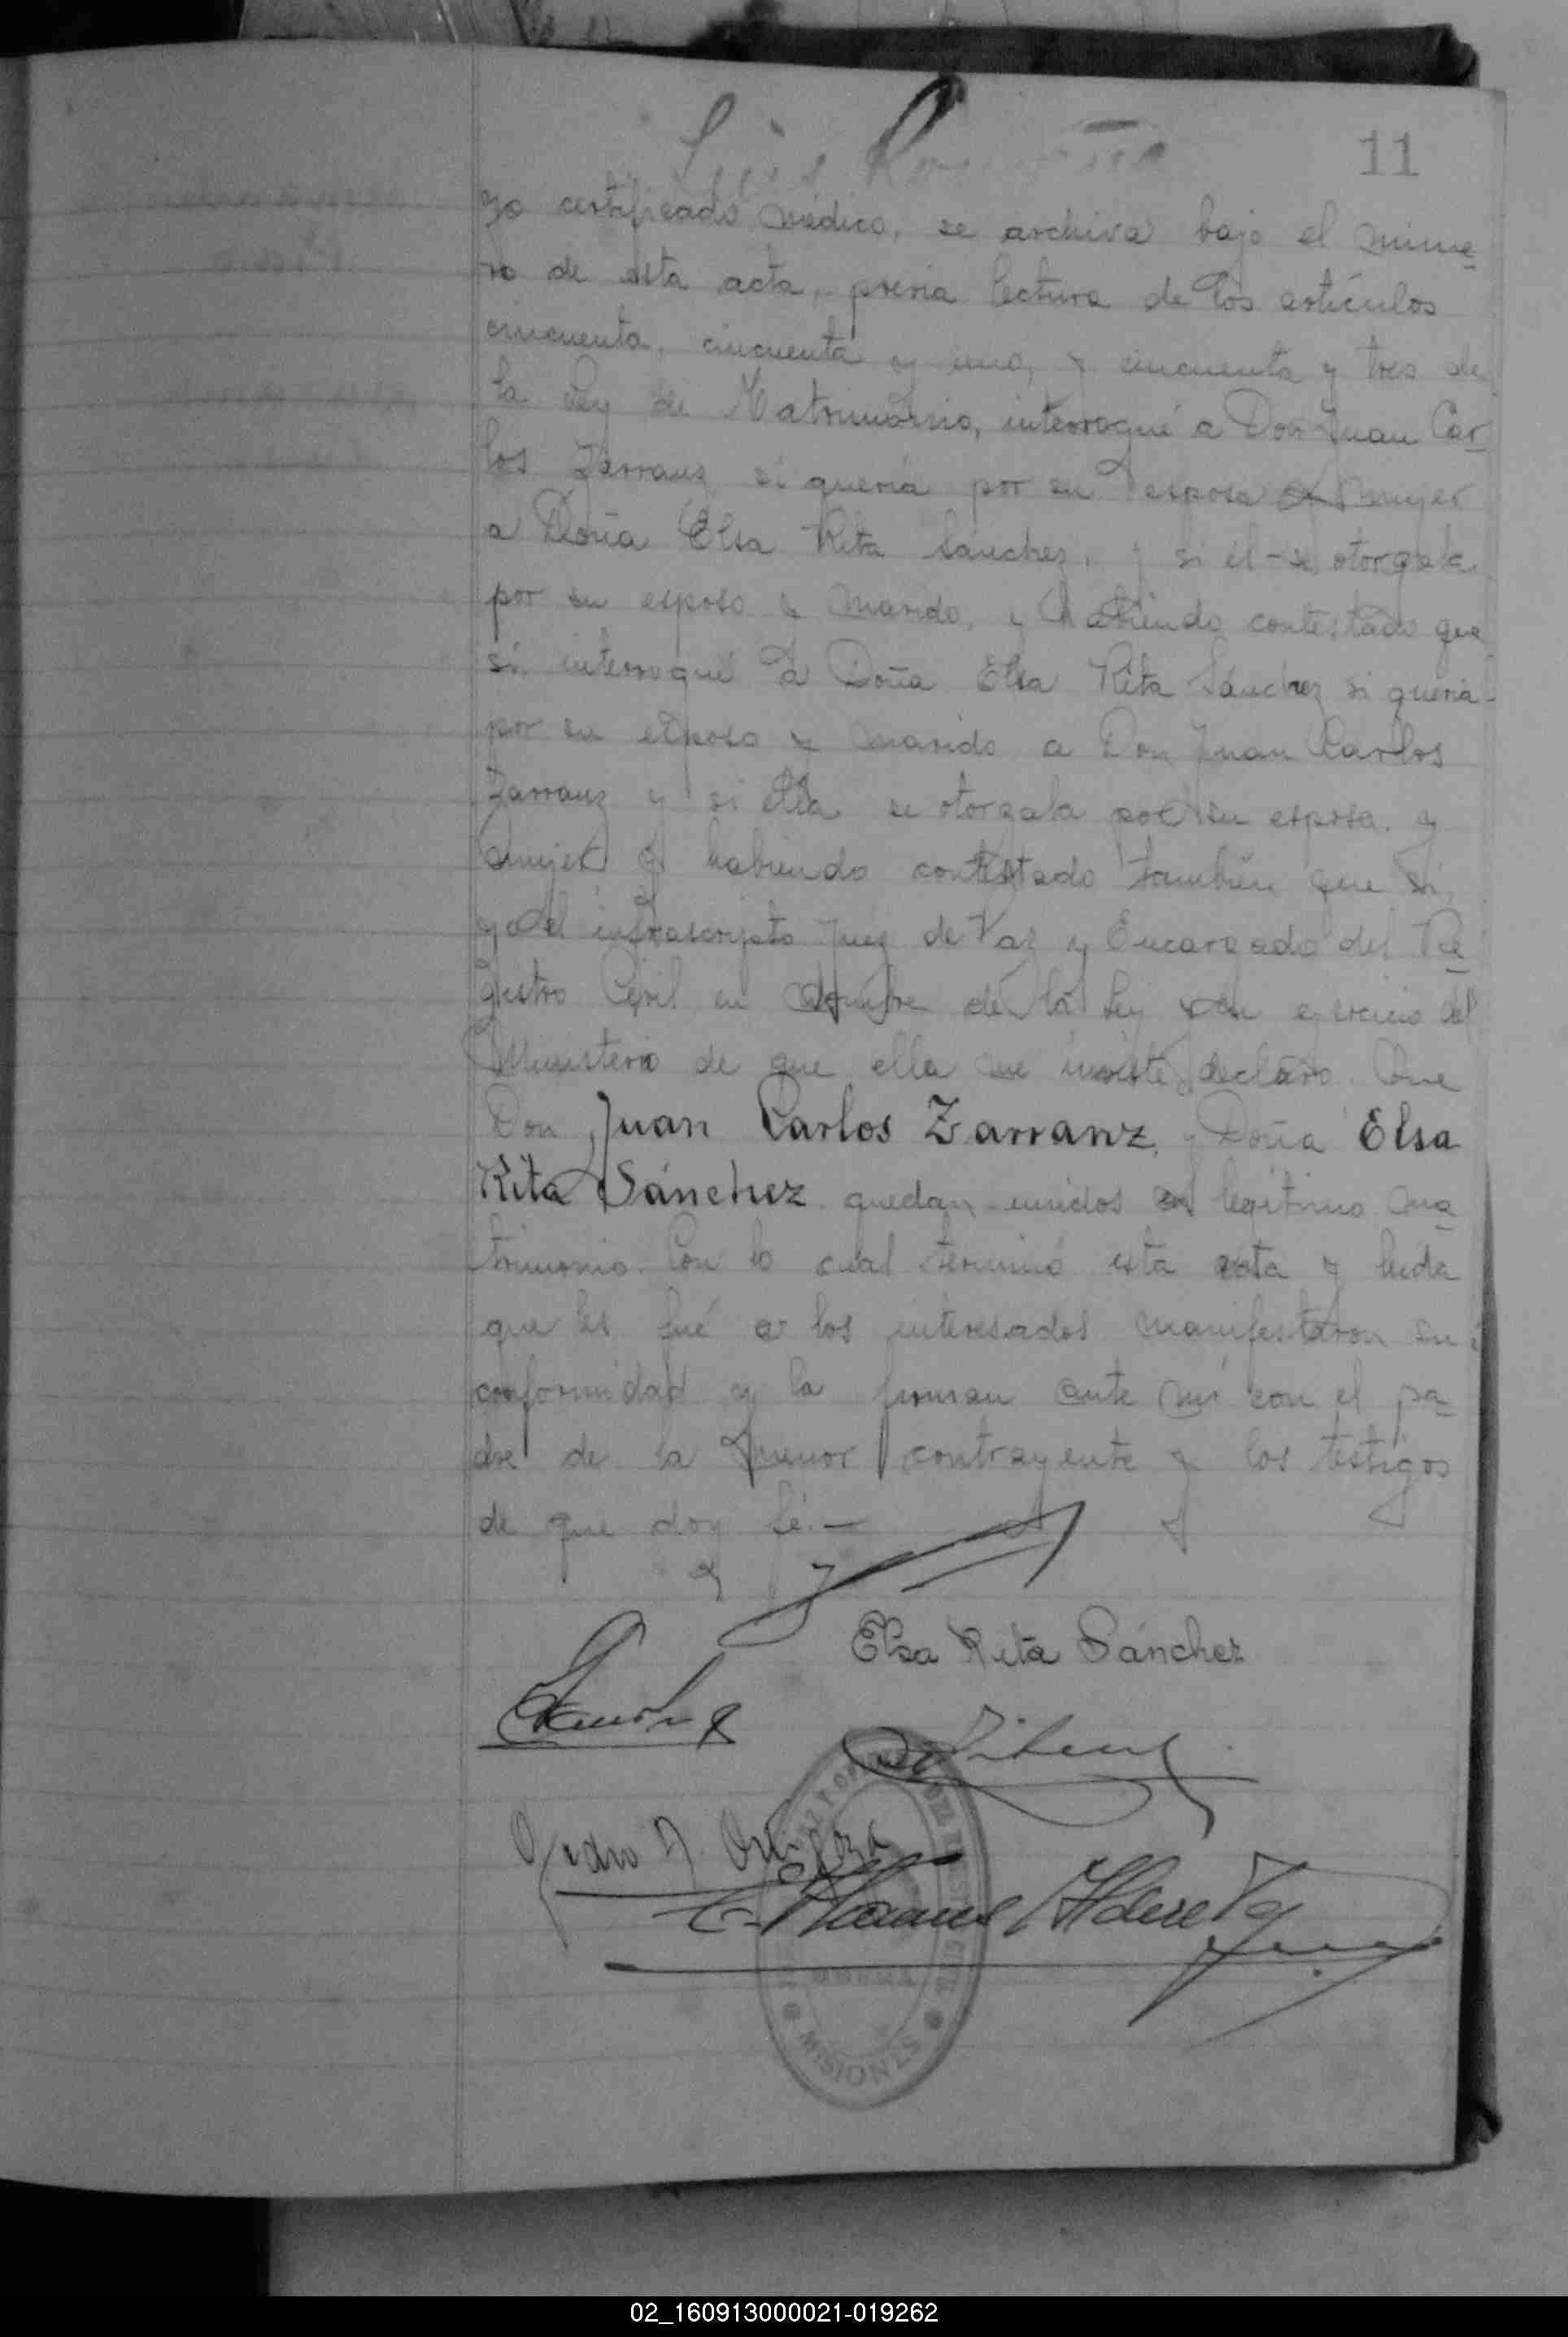 11
yo certificado médico, se archiva bajo el núme-
ro de esta acta, previa lectura de los artículos
cincuenta, cincuenta y uno, y cincuenta y tres de
la Ley de Matrimonio, interrogué a Don Juan Car-
los Zarranz si quería por su esposa y mujer
a Doña Elsa Rita Sánchez, y si él se otorgaba
por su esposo y marido, y habiendo contestado que
sí, interrogué a Doña Elsa Rita Sánchez si quería-
por su esposo y marido a Don Juan Carlos
Zarranz y si ella se otorgaba por su esposa y
mujer y habiendo contestado también que sí,
yo el infrascripto Juez de Paz y Encargado del Re-
gistro Civil en nombre de la Ley y en ejercicio del
Ministerio de que ella me inviste, declaro. Que
Don Juan Carlos Zarranz, y Doña Elsa
Rita Sánchez quedan unidos en legítimo ma-
trimonio. Con lo cual terminó esta acta y leída
que les fué a los interesados manifestaron su
conformidad y la firman ante mí con el pa-
dre de la menor contrayente y los testigos
de que doy fé.—
Elsa Rita Sánchez
Pedro
MISIONES
02_160913000021-019262